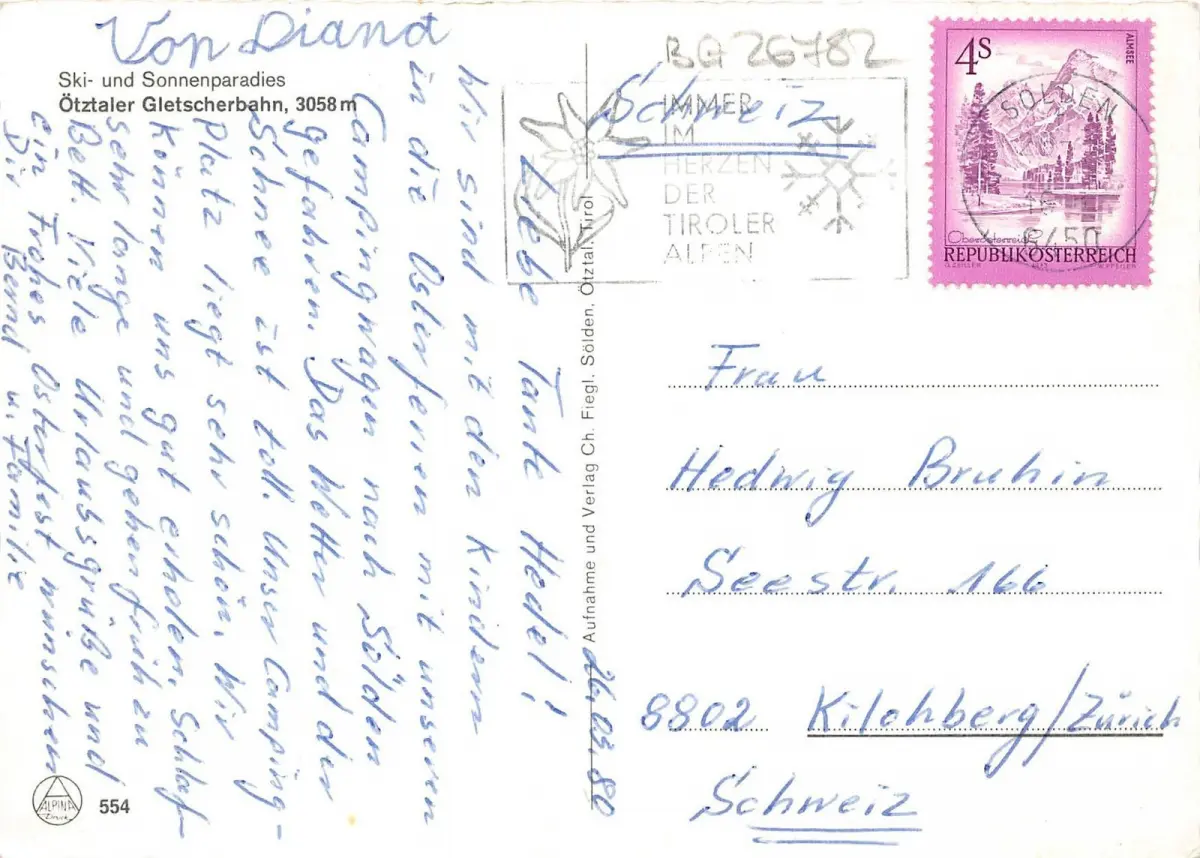 Von Diana
Ski- und Sonnenparadies
Ötztaler Gletscherbahn, 3058 m
26.03.80
Liebe Tante Hedel!
Wir sind mit den Kindern
in die Osterferien mit unseren
Campingwagen nach Sölden
gefahren. Das Wetter und der
Schnee ist toll. Unser Camping-
platz liegt sehr schön. Wir
können uns gut erholen. Schlaf
sehr lange und gehen früh zu
Bett. Viele Urlaubsgrüße und
ein frohes Osterfest wünschen
Dir Bernd u. Familie
ALPINA
Druck
554
Aufnahme und Verlag Ch. Fiegl, Sölden, Ötztal, Tirol
BG 26782
Schweiz
IMMER
IM
HERZEN
DER
TIROLER
ALPEN
4S
ALMSEE
SÖLDEN
6450
Oberösterreich
REPUBLIK ÖSTERREICH
Frau
Hedwig Bruhin
Seestr. 166
8802 Kilchberg/Zürich
Schweiz